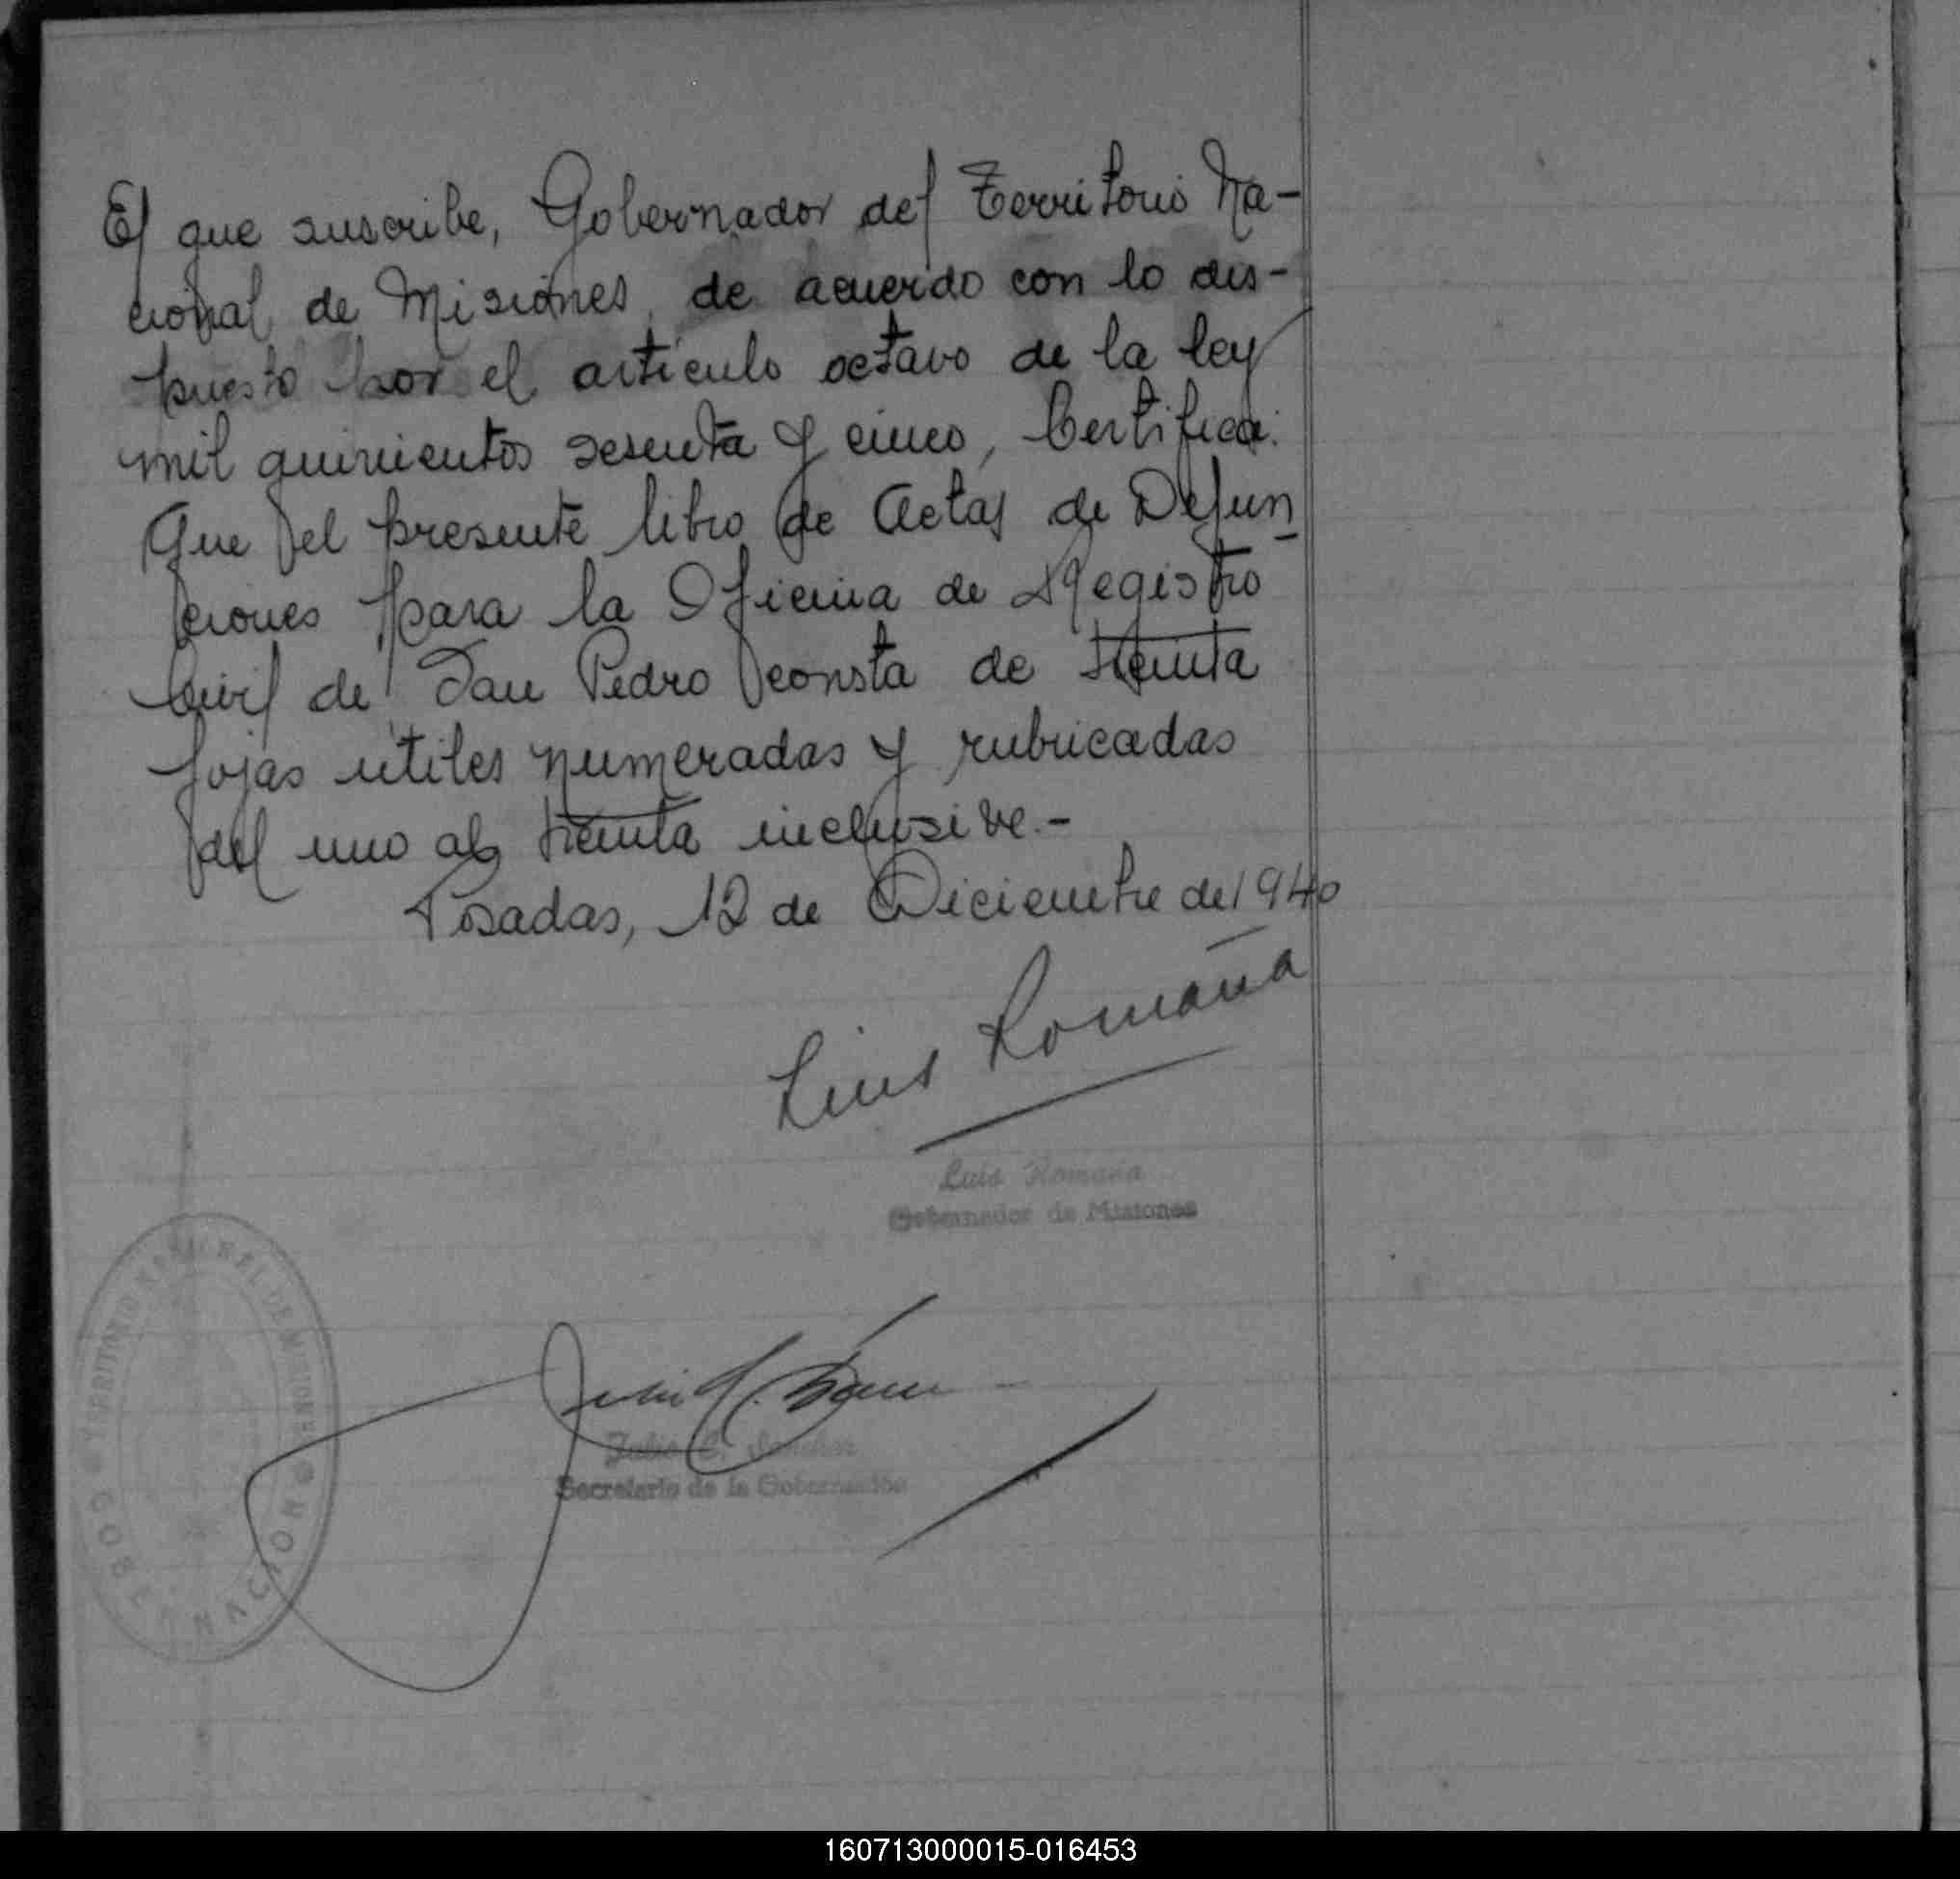 El que suscribe, Gobernador del Territorio Na-
cional de Misiones, de acuerdo con lo dis-
puesto por el artículo octavo de la ley
mil quinientos sesenta y cinco, Certifica:
Que el presente libro de Actas de Defun-
ciones para la Oficina de Registro
Civil de San Pedro consta de treinta
fojas útiles numeradas y rubricadas
del uno al treinta inclusive.-
Posadas, 12 de Diciembre de 1940
Luis Romaña
Luis Romaña
Gobernador de Misiones
TERRITORIO NACIONAL DE MISIONES
GOBERNACION
Julio C. Sanchez
Secretario de la Gobernación
160713000015-016453